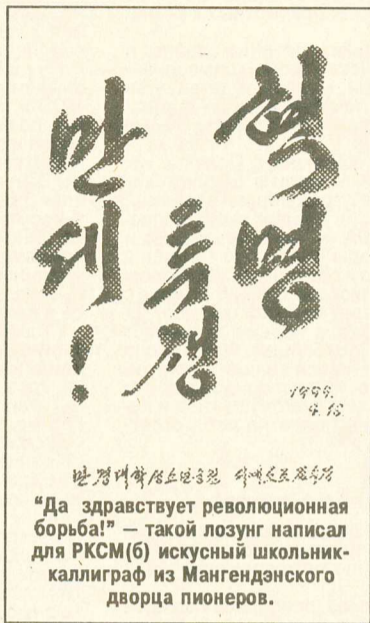 혁명
투쟁
만세!
1999.
9.18.
만경대학생소년궁전 서예소조
"Да здравствует революционная
борьба!" — такой лозунг написал
для РКСМ(б) искусный школьник-
каллиграф из Мангендэнского
дворца пионеров.